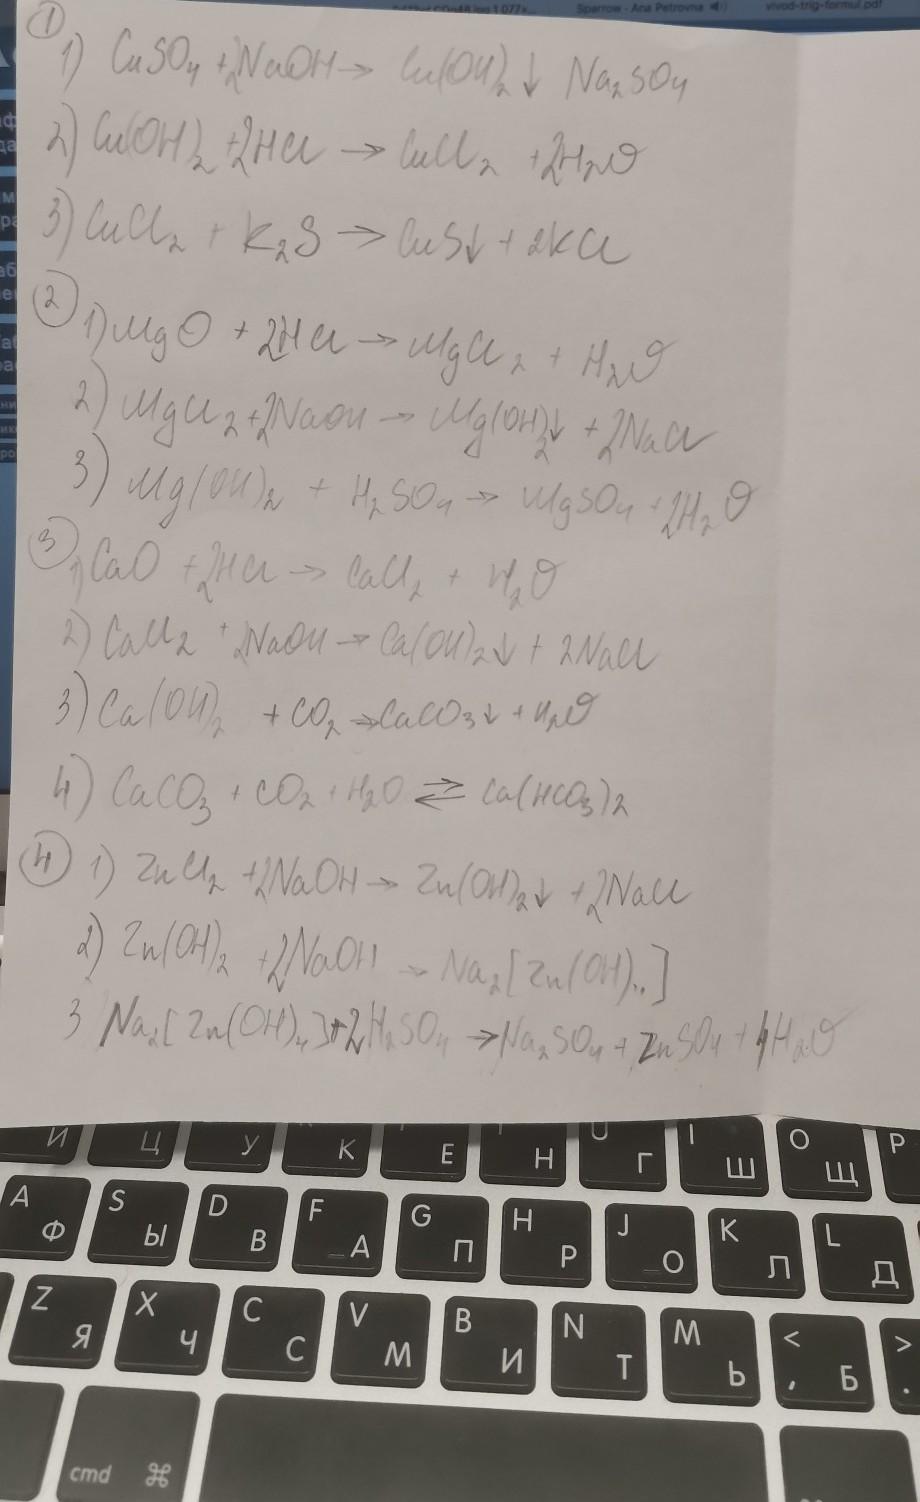 Sparrow - Ana Petrovna
vivod-trig-formul.pdf
①
1) CuSO₄ + 2NaOH → Cu(OH)₂↓ Na₂SO₄
2) Cu(OH)₂ + 2HCl → CuCl₂ + 2H₂O
3) CuCl₂ + K₂S → CuS↓ + 2KCl
②
1) MgO + 2HCl → MgCl₂ + H₂O
2) MgCl₂ + 2NaOH → Mg(OH)₂↓ + 2NaCl
3) Mg(OH)₂ + H₂SO₄ → MgSO₄ + 2H₂O
③
1) CaO + 2HCl → CaCl₂ + H₂O
2) CaCl₂ + 2NaOH → Ca(OH)₂↓ + 2NaCl
3) Ca(OH)₂ + CO₂ → CaCO₃↓ + H₂O
4) CaCO₃ + CO₂ + H₂O ⇄ Ca(HCO₃)₂
④ 1) ZnCl₂ + 2NaOH → Zn(OH)₂↓ + 2NaCl
2) Zn(OH)₂ + 2NaOH → Na₂[Zn(OH)₄]
3 Na₂[Zn(OH)₄] + 2H₂SO₄ → Na₂SO₄ + ZnSO₄ + 4H₂O
И Ц У К E Н U Г I Ш O Щ P
A Ф S Ы D В F А G П H Р J О K Л L Д
Z Я X Ч C С V М B И N Т M Ь < , Б > .
cmd ⌘